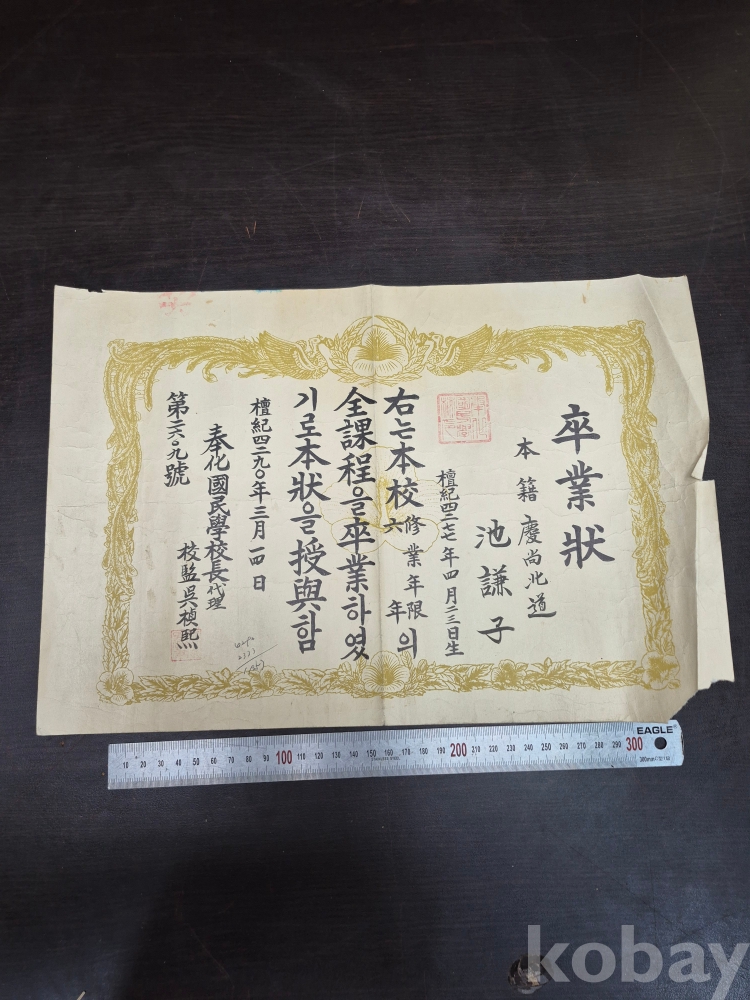 卒業狀
本籍 慶尚北道
池謙子
檀紀四二七七年四月二三日生
右는本校修業年限六年의
全課程을卒業하였
기로本狀을授與함
檀紀四二九〇年三月一四日
奉化國民學校長代理
校監吳楨熙
第二六〇九號
4290
EAGLE
10 20 30 40 50 60 70 80 90 100 110 120 130 140 150 160 170 180 190 200 210 220 230 240 250 260 270 280 290 300
STAINLESS STEEL
kobay